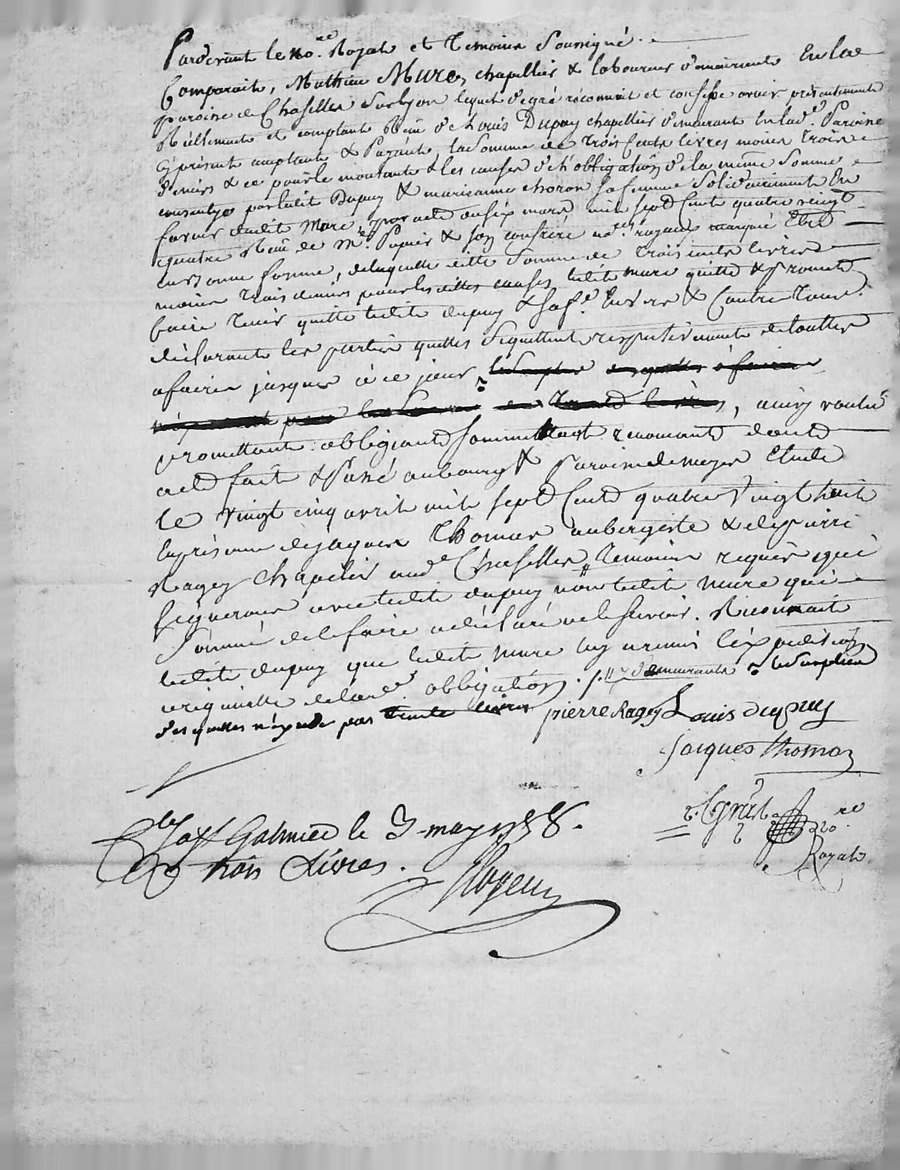 Pardevant le No.re Royal et Temoins Soussigné.
Comparait, Mathieu Mure, chapellier & laboureur demeurant En la
paroisse de Chaselles Surlyon lequel de gré reconnait et confesse avoir présentemente
Réellement et comptant Reçu de Louis Dupuy chapellier demeurant En lad.e Paroisse
Cy présent acceptante & Payante la Somme de Trois Cents livres moins Trois
deniers & ce pour le montante & les causes de L'obligation de la même Somme
consentye par ledit Dupuy & marieanne choron sa femme Solidairement En
faveur dudit Mure, par acte du six mars mil Sept Cent quatre vingt
quatre Reçu de M.e Papier & son confrere no.res royaux
en bonne forme, de laquelle ditte Somme de Trois cents livres
moins trois deniers pour les dittes causes ledit mure quitte & promet
faire Tenir quitte ledit dupuy & sa f.e Envers & Contre Tous.
déclarante les parties quelles Se quittent respectivemente de touttes
affaires jusques à ce jour, , ainsy voulu
promettant obligeant Soumettant renoncant dont
acte fait & Passé au bourg & Paroisse de meys Etude
le vingt cinq avril mil sept Cent quatre vingt huit
En présence de jacques Thomas aubergiste & de pierre
Ragey chapelier aud. Chaselles " Temoins requis qui
Signerons avec ledit dupuy non ledit mure qui
Sommé de le faire a déclaré ne le Savoir. Reconnait
ledit dupuy que ledit mure luy a remis l'expédition
originelle de lad.e obligation. " y demeurants
desquelles
pierre Ragey Louis dupuy
Jacques Thomas
No.re
Royal
Galmier le 3 may 1788.
trois Livres.